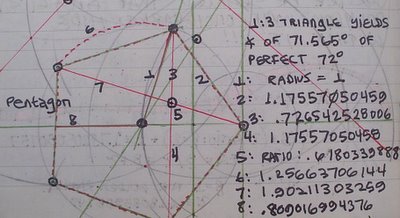 1:3 TRIANGLE YIELDS
∡ OF 71.565° OF
PERFECT 72°
1: RADIUS = 1
2: 1.17557050459
3: .726542528006
4: 1.17557050458
5: RATIO: .6180339888
6: 1.25663706144
7: 1.90211303259
8: .809016994376
Pentagon
6
1
3
2
7
5
8
4